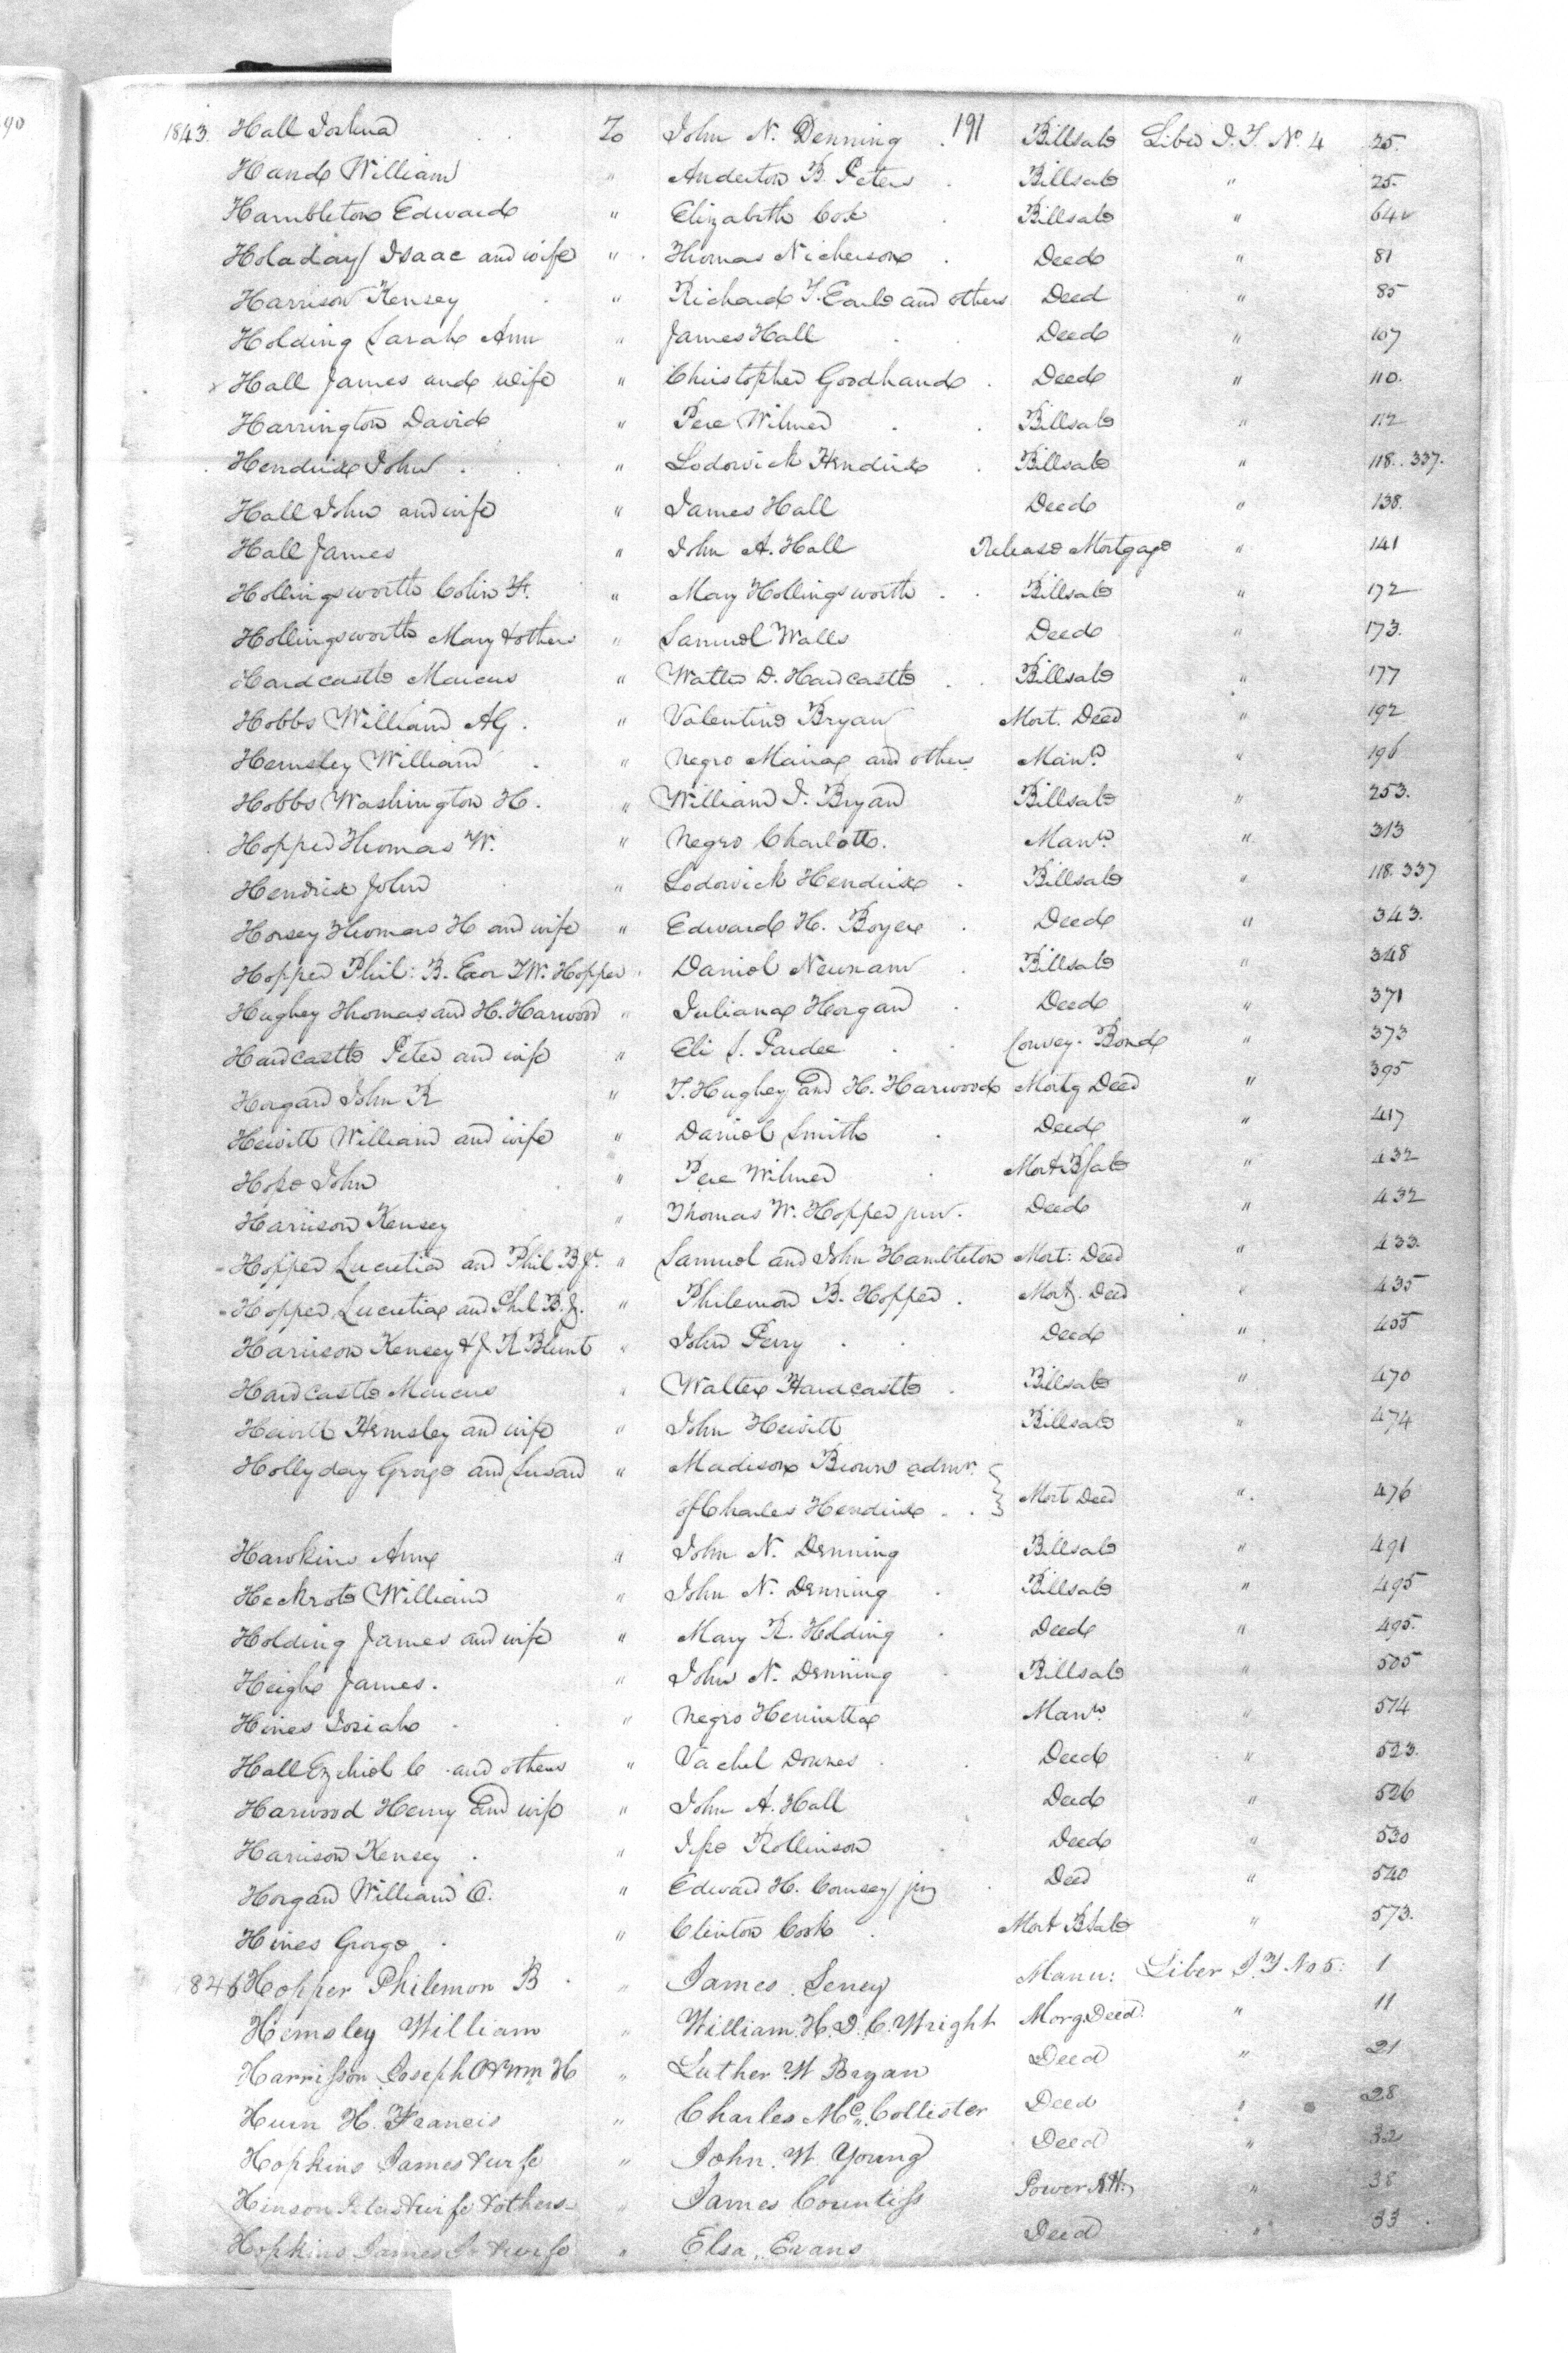 90
1843. Hall Joshua To John N. Denning . 191 Billsale Liber J. T. No. 4 25.
Hand William " Anderton B. Peters . Billsale " 25.
Hambleton Edward " Elizabeth Cox . Billsale " 64
Holaday Isaac and wife " Thomas Nicherson . Deed " 81
Harrison Kensey " Richard T. Earle and others Deed " 85
Holding Sarah Ann " James Hall . Deed " 107
Hall James and wife " Christopher Goodhand . Deed " 110.
Harrington David " Pere Wilmer . Billsale " 112
Hendrix John . " Lodowick Hendrix . Billsale " 118. 337.
Hall John and wife " James Hall Deed " 138.
Hall James " John A. Hall Release Mortgage " 141
Hollingsworth Colin F. " Mary Hollingsworth . . Billsale " 172
Hollingsworth Mary & others " Samuel Walls Deed " 173.
Hardcastle Marcus " Walter D. Hardcastle . . Billsale " 177
Hobbs William AG. " Valentine Bryan Mort. Deed " 192
Hemsley William . " Negro Maria and others Mann. " 196
Hobbs Washington H. " William J. Bryan Billsale " 253.
Hopper Thomas W. " Negro Charlotte. Mann. " 313
Hendrix John " Lodowick Hendrix . Billsale " 118. 337
Horsey Thomas H and wife " Edward H. Boyer . Deed " 343.
Hopper Phil: B. Exor T.W. Hopper " Daniel Newnam . Billsale " 348
Hughey Thomas and H. Harwood " Juliana Horgan . Deed " 371
Hardcastle Peter and wife " Eli S. Pardee . . Convey. Bond " 373
Horgan John R " T. Hughey and H. Harwood Mortg Deed " 395
Hewitt William and wife " Daniel Smith . Deed " 417
Hope John " Pere Wilmer . Mort Bsale " 432
Harrison Kensey " Thomas W. Hopper jun. Deed " 432
Hopper Lucretia and Phil. B. Jr. " Samuel and John Hambleton Mort: Deed " 433.
Hopper Lucretia and Phil. B. J. " Philemon B. Hopper . Mortg. Deed " 435
Harrison Kensey & J. R Blunt " John Perry . . Deed " 455
Hardcastle Marcus " Walter Hardcastle . Billsale " 470
Hewitt Hemsley and wife " John Hewitt Billsale " 474
Hollyday George and Susan " Madison Brown admr.
of Charles Hendrix . . } Mort Deed " 476
Hawkins Ann " John N. Denning Billsale " 491
Heckrote William " John N. Denning . Billsale " 495
Holding James and wife " Mary R. Holding . Deed " 495.
Heighe James. " John N. Denning . Billsale " 505
Hines Josiah . " Negro Henrietta Mann. " 514
Hall Ezekiel C . and others " Vachel Downes . . Deed " 523.
Harwood Henry and wife " John A. Hall Deed " 526
Harrison Kensey . " Jesse Rollinson . Deed " 530
Horgan William O. " Edward H. Comegy jr . Deed " 540
Hines George . " Clinton Cook . Mort Bsale " 573.
1846 Hopper Philemon B . " James Seney Manu: Liber J. T No 5: 1
Hemsley William " William. H. D. C. Wright Morg. Deed. " 11
Harrisson Joseph O & Wm H " Luther W Bryan Deed " 21
Hurn H. Francis " Charles Mc. Collister Deed " 28
Hopkins James & wife " John. W Young Deed " 32
Hinson & wife & others " James Countiss Power Att: " 38
Hopkins James & wife " Elsa Evans Deed " 33 .